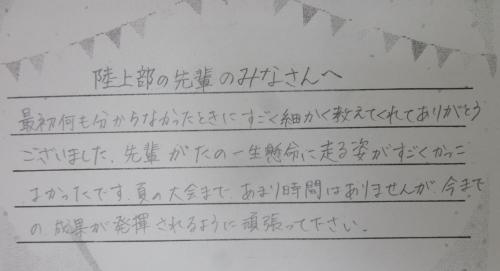 陸上部の先輩のみなさんへ
最初何も分からなかったときにすごく細かく教えてくれてありがとう
ございました。先輩がたの一生懸命に走る姿がすごくかっこ
よかったです。夏の大会まであまり時間はありませんが、今まで
の成果が発揮されるように頑張って下さい。